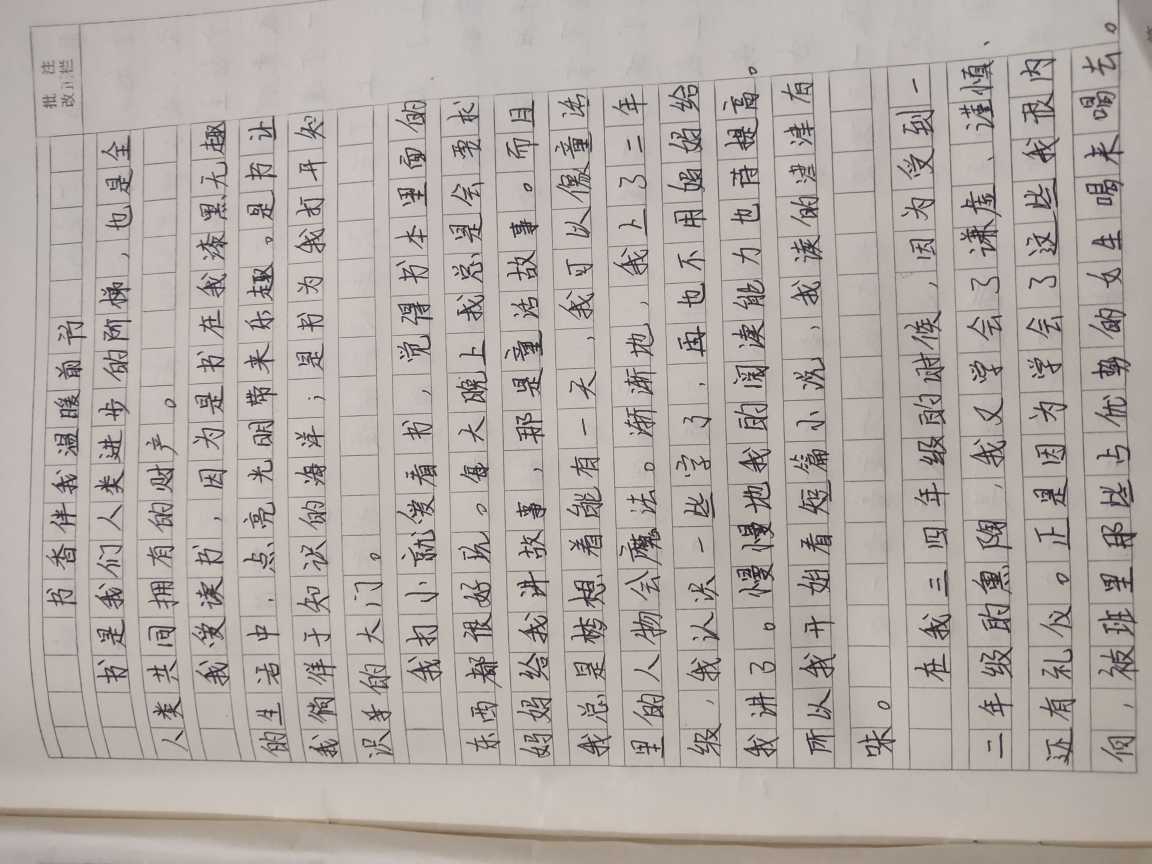 批注
改正栏
书香伴我温暖前行
书是我们人类进步的阶梯，也是全
人类共同拥有的财产。
我爱读书，因为是书在我漆黑无趣
的生活中，点亮光明带来乐趣。是书让
我徜徉于知识的海洋；是书为我打开知
识的大门。
我打小就爱看书，觉得书本里面的
东西都很好玩。每天晚上我总是会要求
妈妈给我讲故事，那是童话故事。而且
我总是梦想着能有一天，我可以像童话
里的人物会魔法。渐渐地，我上了二年
级，我认识一些字了，再也不用妈妈给
我讲了。慢慢地我的阅读能力也待提高。
所以我开始看短篇小说，我读的津津有
味。
在我三四年级的时候，因为受到一
二年级的熏陶，我又学会了谦虚、谨慎、
还有礼仪。正是因为学会了这些我很内
向，被班里那些占优势的女生喝来喝去。